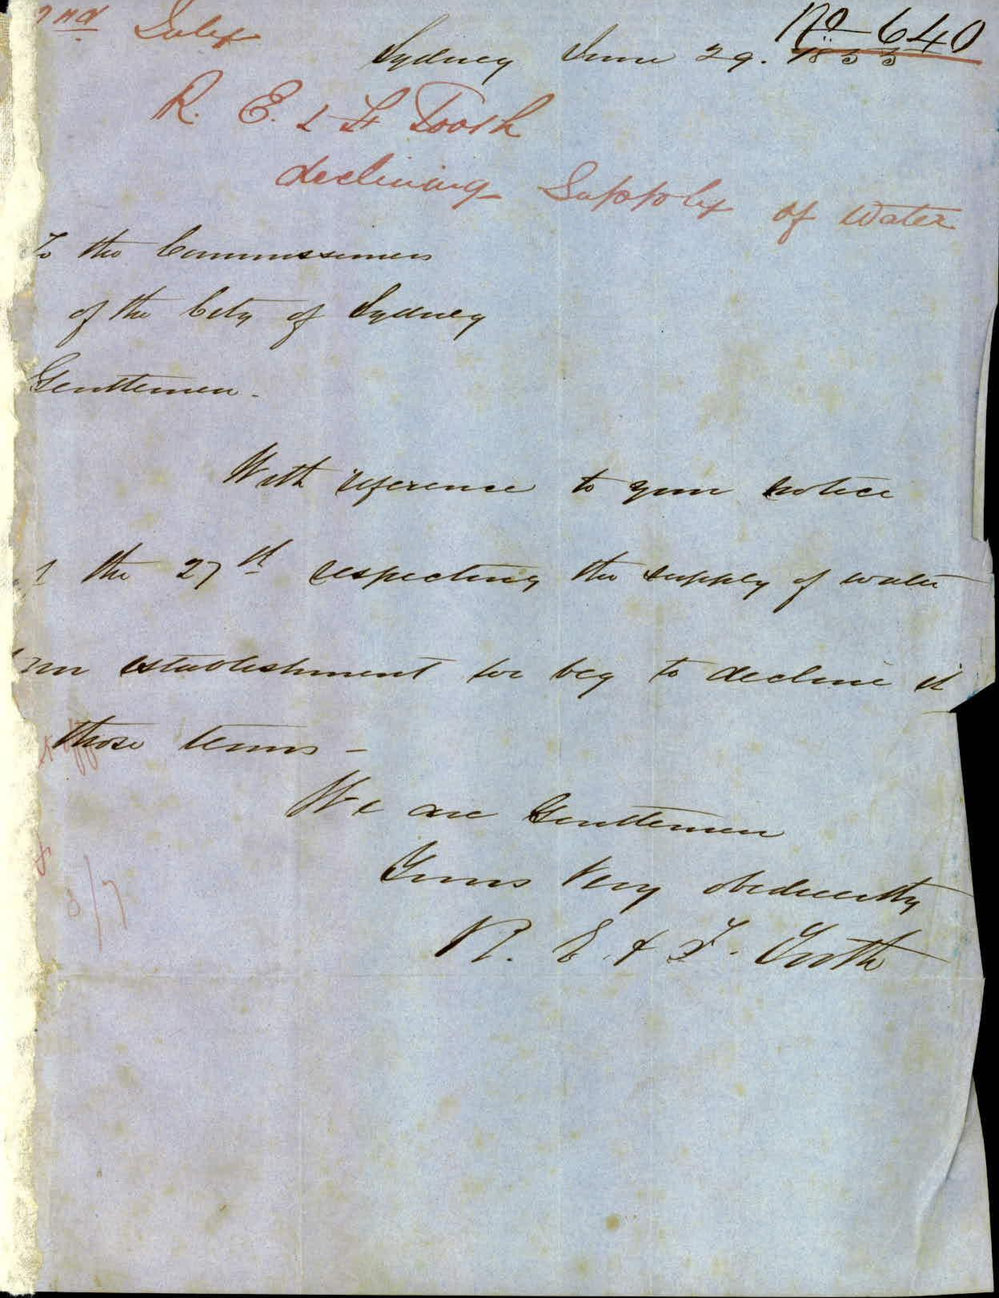 2nd July
No 640
Sydney June 29. 1855
R. E. & F Tooth
declining Supply of Water
To the Commissioners
of the City of Sydney
Gentlemen.
With reference to your notice
of the 27th respecting the supply of water
our establishment we beg to decline it
those terms -
We are Gentlemen
Yours Very obediently
R. E. & F. Tooth
3/7